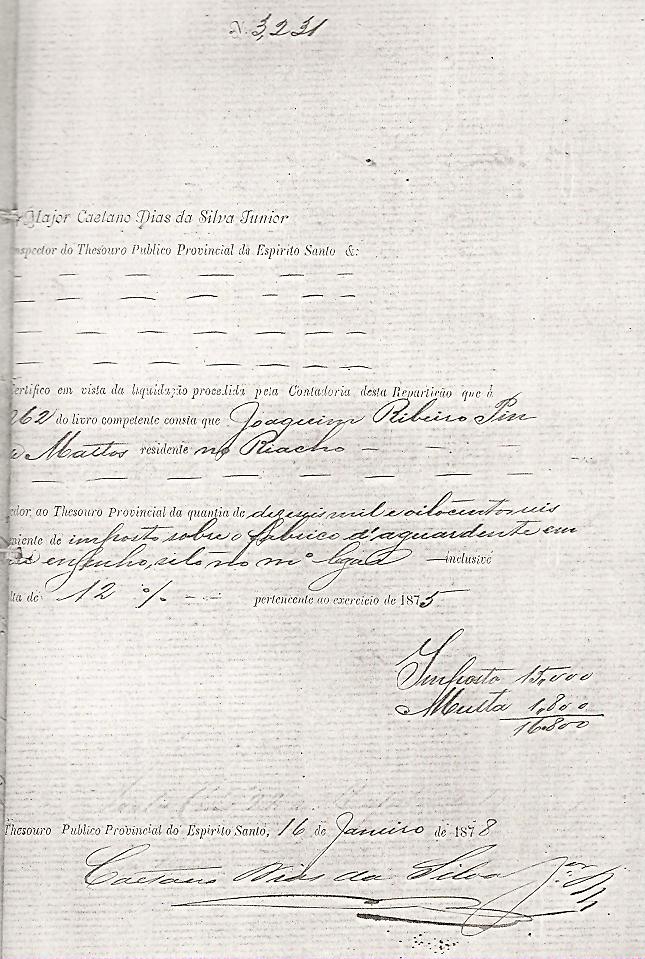 N. 3,231
Major Caetano Dias da Silva Junior
nspector do Thesouro Publico Provincial do Espirito Santo &:
ertifico em vista da liquidação procedida pela Contadoria desta Repartição que á
262 do livro competente consta que Joaquim Ribeiro Pin
Mattos residente no Riacho
edor ao Thesouro Provincial da quantia de dezeseis mil e oitocentos reis
niente de imposto sobre o fabrico d'aguardente em
engenho, sito no mº lugar inclusivé
lta de 12 % pertencente ao exercicio de 1875
Imposto 15,000
Multa 1,800
16.800
Thesouro Publico Provincial do Espirito Santo, 16 de Janeiro de 1878
Caetano Dias da Silva Jor